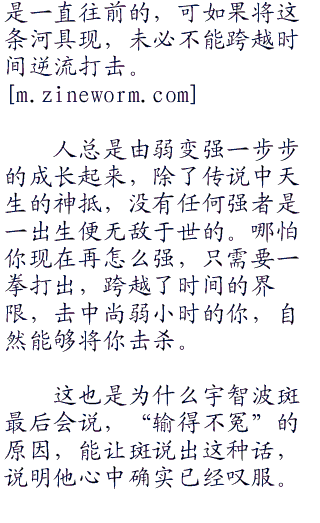 是一直往前的，可如果将这
条河具现，未必不能跨越时
间逆流打击。
[m.zineworm.com]
人总是由弱变强一步步
的成长起来，除了传说中天
生的神抵，没有任何强者是
一出生便无敌于世的。哪怕
你现在再怎么强，只需要一
拳打出，跨越了时间的界
限，击中尚弱小时的你，自
然能够将你击杀。
这也是为什么宇智波斑
最后会说，“输得不冤”的
原因，能让斑说出这种话，
说明他心中确实已经叹服。